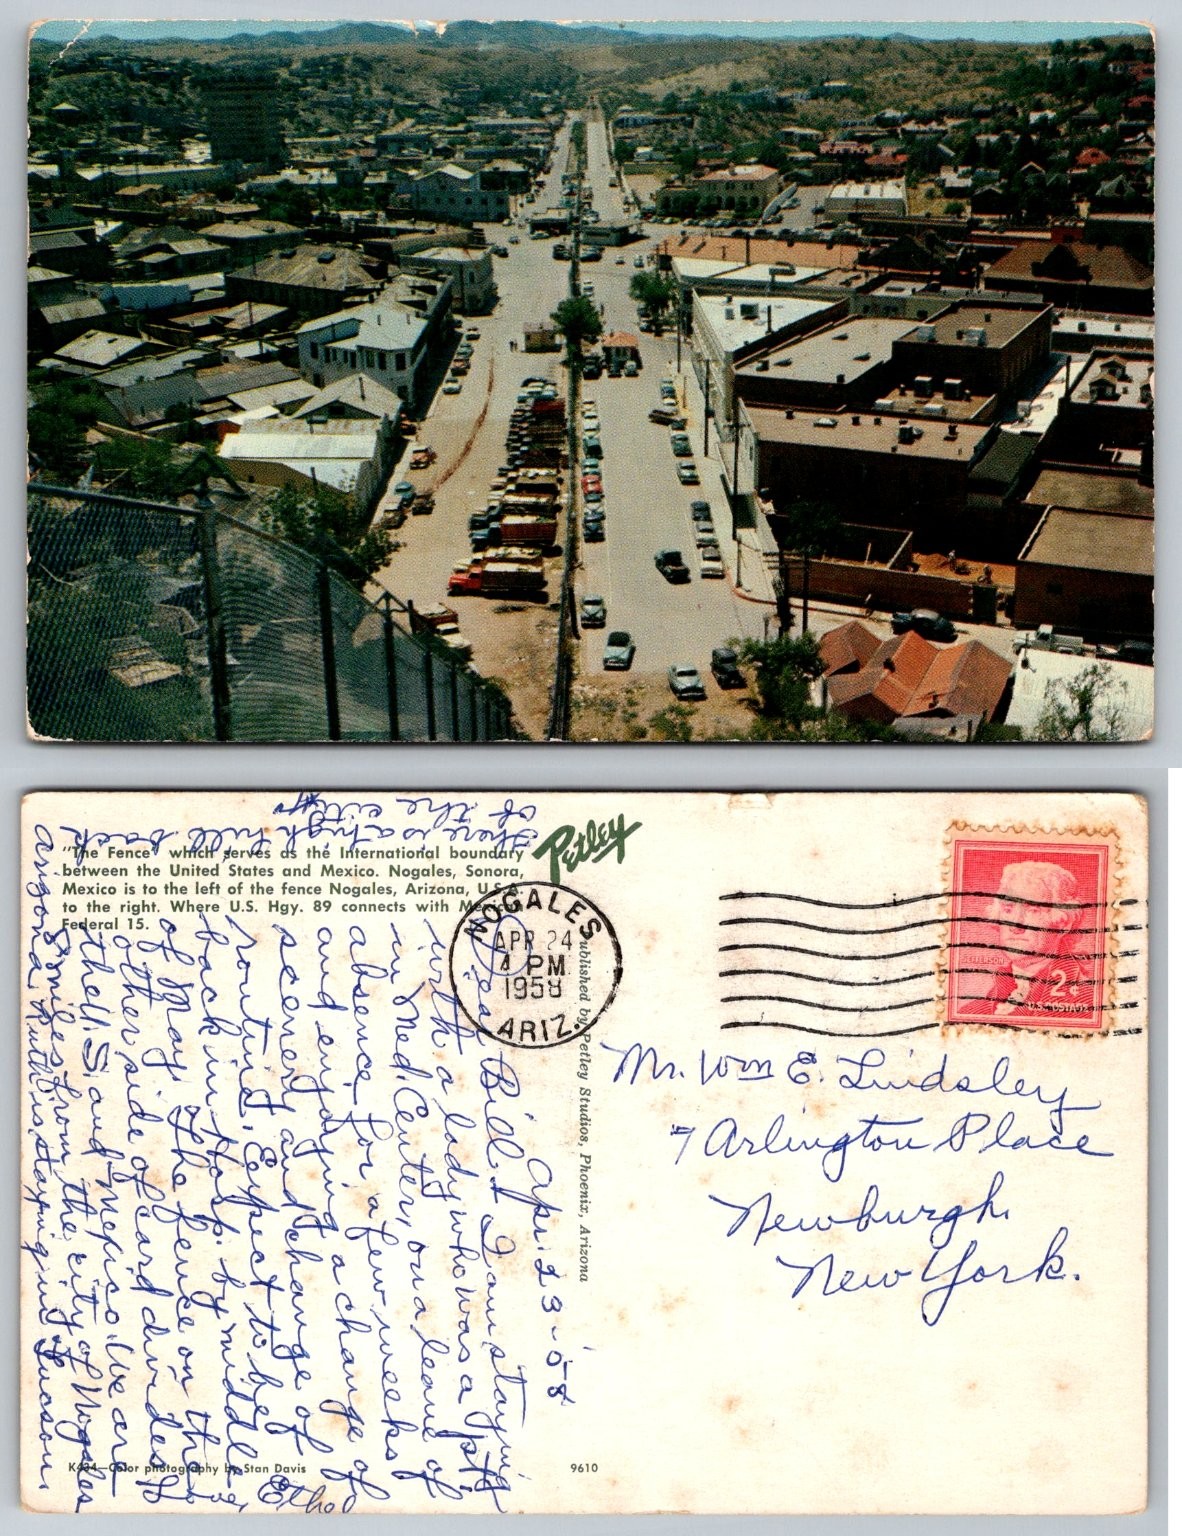 "The Fence" which serves as the International boundary
between the United States and Mexico. Nogales, Sonora,
Mexico is to the left of the fence Nogales, Arizona, U.S.A.
to the right. Where U.S. Hgy. 89 connects with Mexican
Federal 15.
Petley
NOGALES
APR 24
4 PM
1958
ARIZ.
JEFFERSON
2¢
U.S. POSTAGE
Published by Petley Studios, Phoenix, Arizona
Mr. Wm E. Lindsley
7 Arlington Place
Newburgh.
New York.
Apr. 23-'58
Dear Bill. I am staying
with a lady who was a pt.
in Med. Center, on a leave of
absence for a few weeks
and enjoying a change of
scenery and change of
routine. Expect to be
back in Hosp. by middle
of May. The fence on the
other side of card divides
the U.S and Mexico. We are
5 miles from the city of Nogales
Arizona. Ruth is staying in Tucson.
There is a high hill back
of the city
Ethel
K434—Color photography by Stan Davis
9610